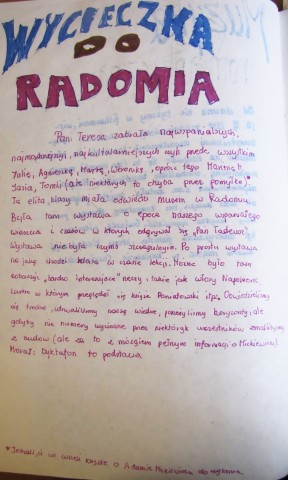 WYCIECZKA
DO
RADOMIA
Pani Teresa zabrała najwspanialszych,
najmądrzejszych, najkulturalniejszych czyli przede wszystkim
Julię, Agnieszkę, Martę, Weronikę, oprócz tego
Tomka (ale niektórych to chyba przez pomyłkę).
Ta elita klasy miała odwiedzić muzeum w Radomiu.
Była tam wystawa o epoce naszego wspaniałego
wieszcza i czasów, w których odgrywał się „Pan Tadeusz".
Wystawa nie była czymś szczególnym. Po prostu wystawa
na jaką chodzi klasa w czasie lekcji. Można było tam
zobaczyć „bardzo interesujące" rzeczy, takie jak włosy Napoleona,
lustro w którym przeglądał się książe Poniatowski itp. Dowiedzieliśmy
się trochę, utrwaliliśmy naszą wiedzę, poszerzyliśmy horyzonty, ale
gdyby nie numery wycinane przez niektórych uczestników zmarlibyśmy
z nudów (ale za to z mózgiem pełnym informacji o Mickiewiczu).
Morał: dyktafon to podstawa
* Jeżeli o Adamie Mickiewiczu do